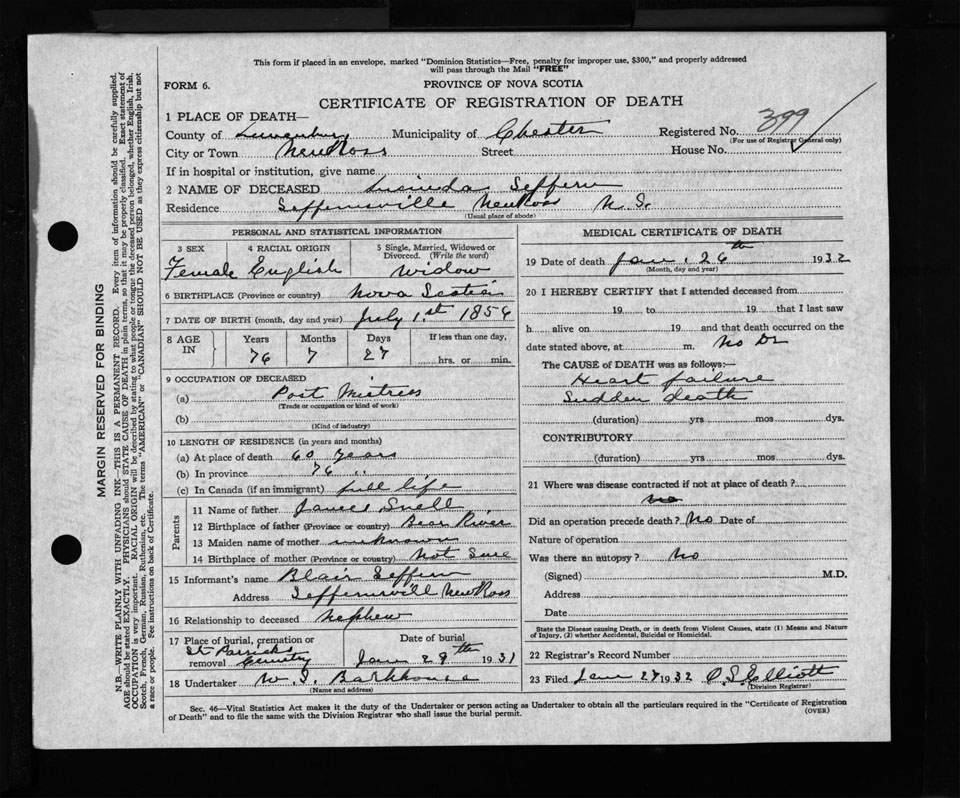 This form if placed in an envelope, marked "Dominion Statistics—Free, penalty for improper use, $300," and properly addressed
will pass through the Mail "FREE"
FORM 6.
PROVINCE OF NOVA SCOTIA
CERTIFICATE OF REGISTRATION OF DEATH
1 PLACE OF DEATH—
County of Lunenburg Municipality of Chester Registered No. 399
(For use of Registrar General only)
City or Town New Ross Street House No.
If in hospital or institution, give name
2 NAME OF DECEASED Lucinda Seffern
Residence Seffernsville New Ross N. S.
(Usual place of abode)
PERSONAL AND STATISTICAL INFORMATION
3 SEX 4 RACIAL ORIGIN 5 Single, Married, Widowed or Divorced. (Write the word)
Female English Widow
6 BIRTHPLACE (Province or country) Nova Scotia
7 DATE OF BIRTH (month, day and year) July 1st 1856
8 AGE IN Years Months Days If less than one day,
76 7 27 hrs. or min.
9 OCCUPATION OF DECEASED
(a) Post Mistress
(Trade or occupation or kind of work)
(b)
(Kind of industry)
10 LENGTH OF RESIDENCE (in years and months)
(a) At place of death 60 years
(b) In province 76 "
(c) In Canada (if an immigrant) full life
Parents
11 Name of father James Snell
12 Birthplace of father (Province or country) Bear River
13 Maiden name of mother unknown
14 Birthplace of mother (Province or country) Not Sure
15 Informant's name Blair Seffern
Address Seffernsvill New Ross
16 Relationship to deceased Nephew
17 Place of burial, cremation or removal St Patricks Cemetry
Date of burial Jan 29th 1931
18 Undertaker W. S. Barkhouse
(Name and address)
MEDICAL CERTIFICATE OF DEATH
19 Date of death Jan. 26th 1932
(Month, day and year)
20 I HEREBY CERTIFY that I attended deceased from
19 to 19 that I last saw
h alive on 19 and that death occurred on the
date stated above, at m. No Dr
The CAUSE OF DEATH was as follows:—
Heart failure
Sudden death
(duration) yrs mos dys.
CONTRIBUTORY
(duration) yrs mos dys.
21 Where was disease contracted if not at place of death?
no
Did an operation precede death? No Date of
Nature of operation
Was there an autopsy? No
(Signed) M.D.
Address
Date
State the Disease causing Death, or in death from Violent Causes, state (1) Means and Nature
of Injury, (2) whether Accidental, Suicidal or Homicidal.
22 Registrar's Record Number
23 Filed Jan 27 1932 O. S. Elliott
(Division Registrar)
Sec. 46—Vital Statistics Act makes it the duty of the Undertaker or person acting as Undertaker to obtain all the particulars required in the "Certificate of Registration
of Death" and to file the same with the Division Registrar who shall issue the burial permit.
(OVER)
MARGIN RESERVED FOR BINDING
N.B.—WRITE PLAINLY WITH UNFADING INK—THIS IS A PERMANENT RECORD. Every item of information should be carefully supplied.
AGE should be stated EXACTLY. PHYSICIANS should STATE CAUSE OF DEATH in plain terms, so that it may be properly classified. Exact statement of
OCCUPATION is very important. RACIAL ORIGIN will be described by stating to what people or tongue the deceased person belonged, whether English, Irish,
Scotch, French, German, Russian, Ruthenian, etc. The terms "AMERICAN" or "CANADIAN" SHOULD NOT BE USED as they express citizenship but not
a race or people. See instructions on back of Certificate.